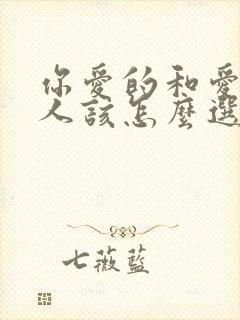 你愛的和愛
人該怎麼選
七薇藍